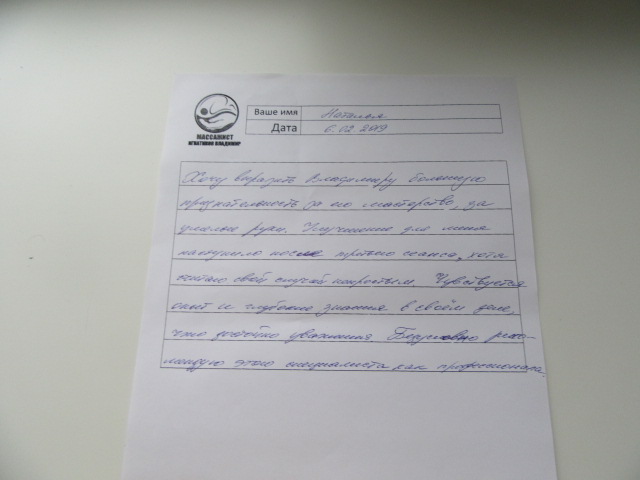 МАССАЖИСТ
ИГНАТОВИЧ ВЛАДИМИР
Ваше имя Наталья
Дата 6.02.2019
Хочу выразить Владимиру большую
признательность за его мастерство, за
умелые руки. Улучшение для меня
наступило после третьего сеанса, хотя
считаю свой случай непростым. Чувствуется
опыт и глубокие знания в своём деле,
что достойно уважения. Безусловно реко-
мендую этого специалиста как профессионала.